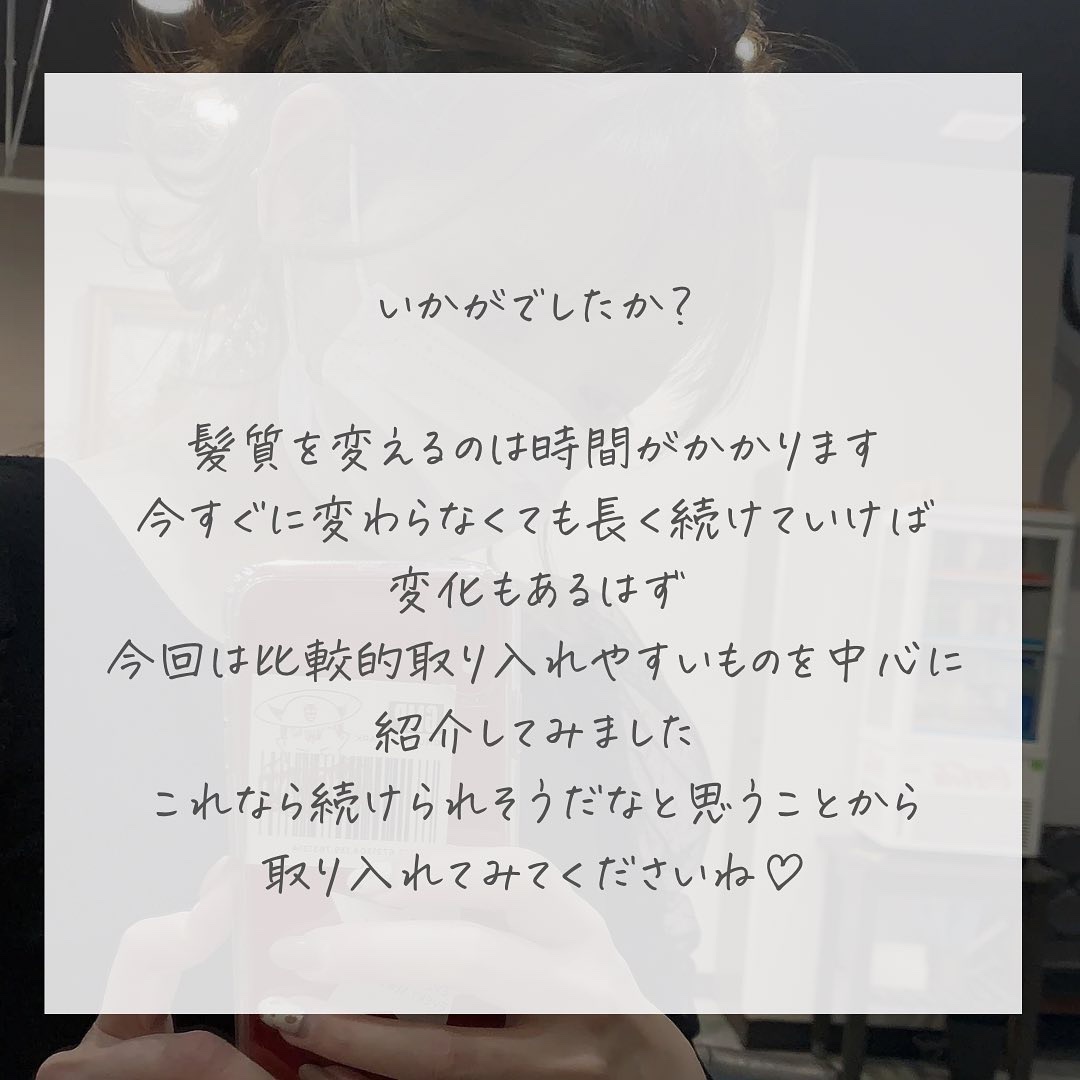 いかがでしたか?
髪質を変えるのは時間がかかります
今すぐに変わらなくても長く続けていけば
変化もあるはず
今回は比較的取り入れやすいものを中心に
紹介してみました
これなら続けられそうだなと思うことから
取り入れてみてくださいね♡